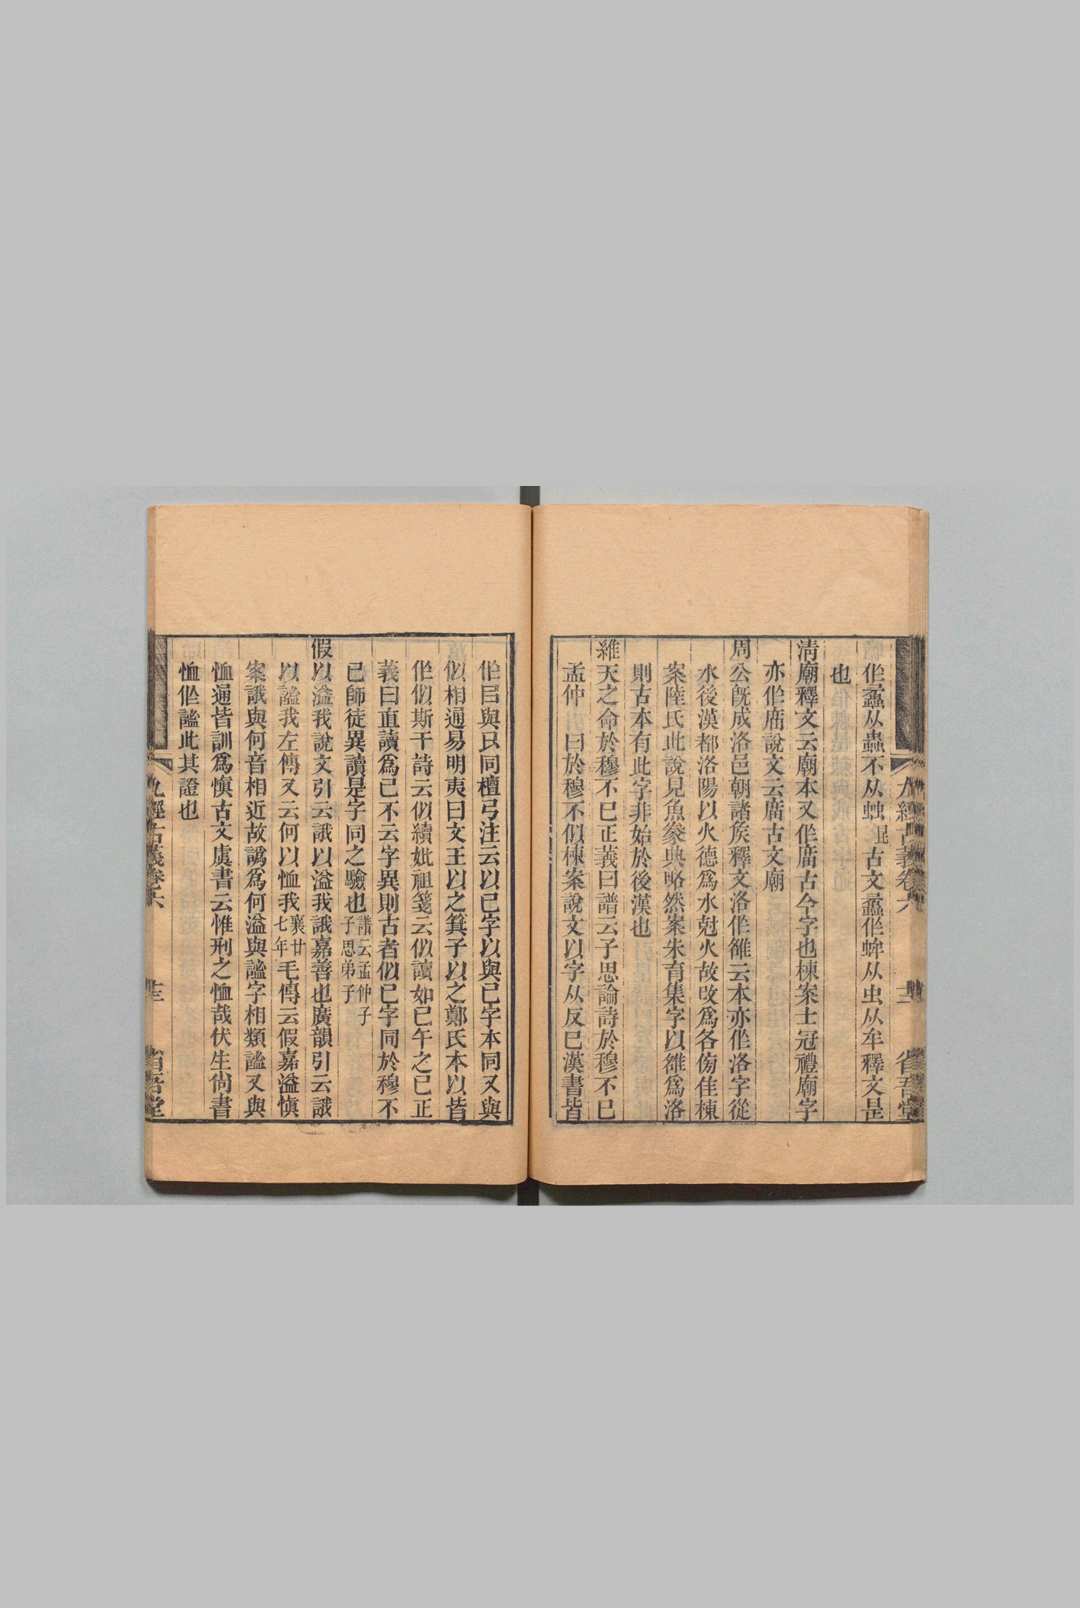 九經古義卷六
十二
省吾堂
作蠡从蟲不从䖵昆古文蠡作蛑从虫从牟釋文是
也
清廟釋文云廟本又作庿古今字也棟案士冠禮廟字
亦作庿說文云庿古文廟
周公旣成洛邑朝諸矦釋文洛作雒云本亦作洛字從
水後漢都洛陽以火德爲水尅火故改爲各傍隹棟
案陸氏此說見魚豢典略然案朱育集字以雒爲洛
則古本有此字非始於後漢也
維天之命於穆不已正義曰譜云子思論詩於穆不已
孟仲 曰於穆不似棟案說文以字从反已漢書皆
作㠯與只同檀弓注云以已字以與已字本同又與
似相通易明夷曰文王以之箕子以之鄭氏本以皆
作似斯干詩云似續妣祖箋云似讀如已午之已正
義曰直讀爲已不云字異則古者似已字同於穆不
已師徒異讀是字同之驗也譜云孟仲子子思弟子
假以溢我說文引云誐以溢我誐嘉善也廣韻引云誐
以謐我左傳又云何以恤我襄廿七年毛傳云假嘉溢愼
案誐與何音相近故譌爲何溢與謐字相類謐又與
恤通皆訓爲愼古文虞書云惟刑之恤哉伏生尙書
恤作謐此其證也
九經古義卷六
十三
省吾堂